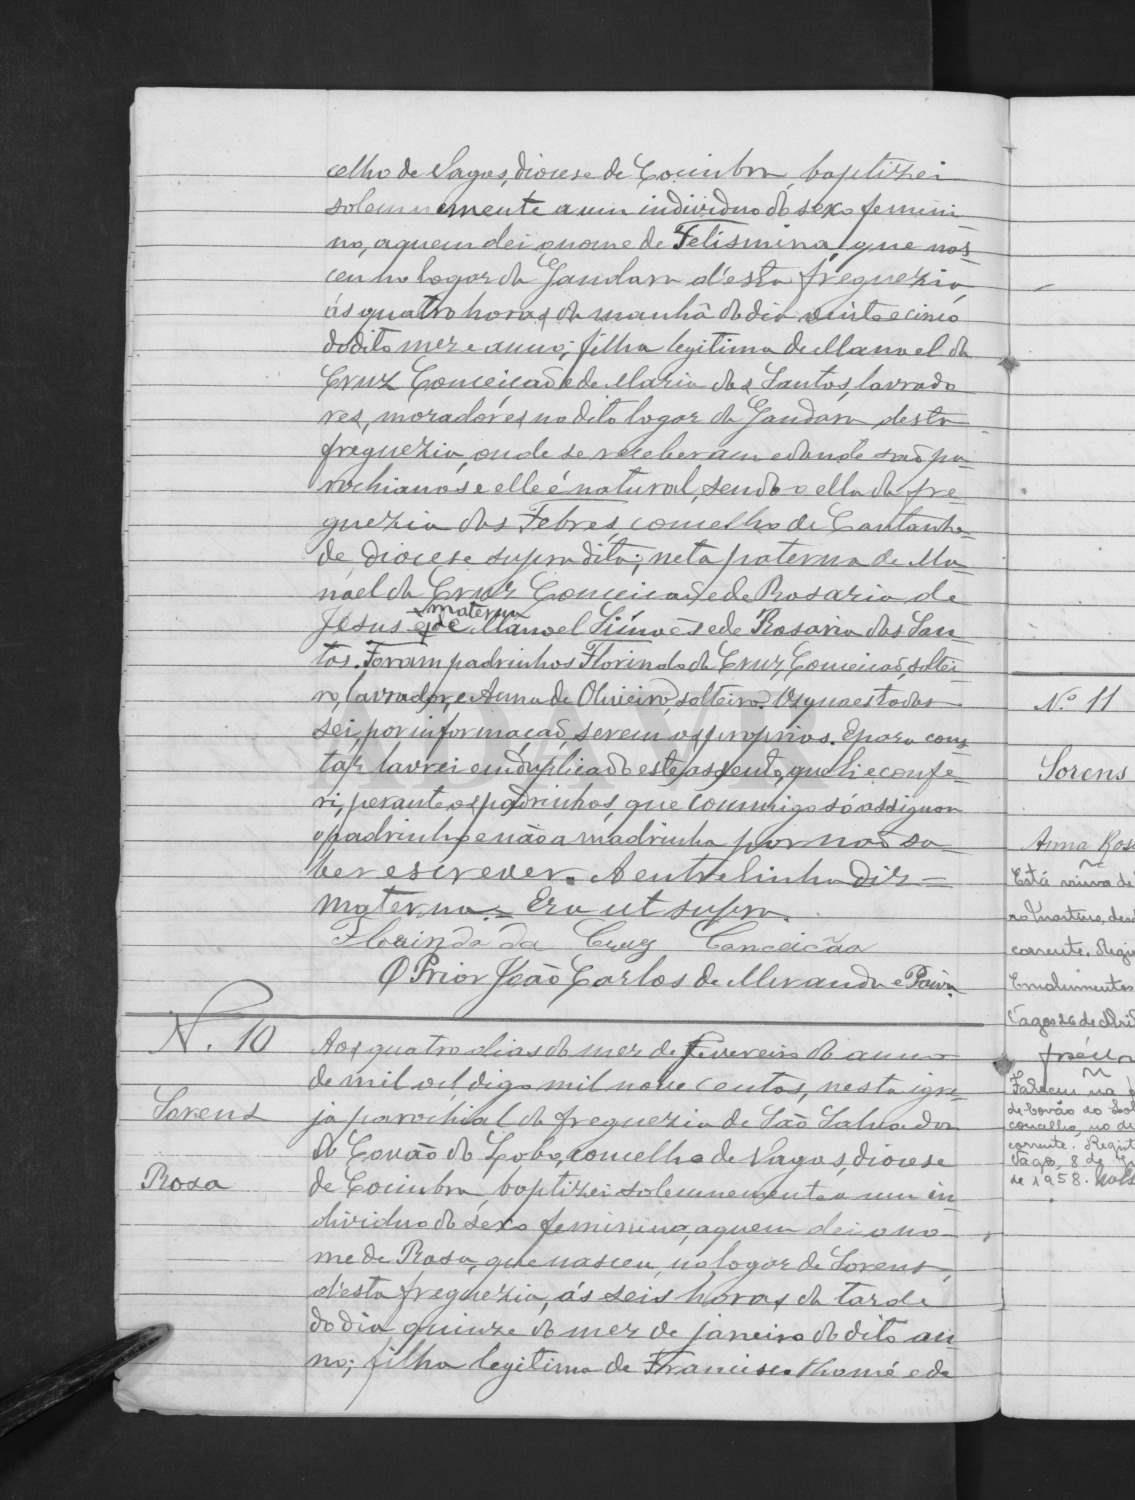 celho de Vagos, diocese de Coimbra, baptizei
solemnemente a um individuo do sexo femini-
no, a quem dei o nome de Felismina, que nas-
ceu no logar da Gandara d'esta freguezia,
ás quatro horas da manhã do dia vinte e cinco
do dito mez e anno; filha legitima de Manoel da
Cruz Conceicaõ e de Maria dos Santos, lavrado
res, moradores no dito logar da Gandara desta
freguezia, onde se receberam e donde saõ pa-
rochianos e elle é natural, sendo o ella da fre-
guezia das Febres, concelho de Cantanhe-
de diocese supradita; neta paterna de Ma-
noel da Cruz Conceicaõ e de Rosaria de
Jesus e materna de Manoel Simões e de Rosaria dos San-
tos. Foram padrinhos Florindo da Cruz Conceicaõ, soltei-
ro, lavrador, e Anna de Oliveira, solteira. Os quaes todos
sei, por informaçaõ, serem os proprios. E para cons-
tar lavrei em duplicado este assento, que li e confe-
ri, perante os padrinhos, que commigo só assignou
o padrinho e não a madrinha por naõ sa-
ber escrever. A entrelinha diz =
materna = Era ut supra.
Florindo da Cruz Conceicão
O Prior João Carlos de Miranda e Paiva
N. 10
Sorens
Rosa
Aos quatro dias do mez de Fevereiro do anno
de mil oit, digo mil nove centos, nesta igre-
ja parochial da freguezia de São Salvador
do Covão do Lobo, concelho de Vagos, diocese
de Coimbra, baptizei solemnemente a um in-
dividuo do sexo feminino, a quem dei o no-
me de Rosa, que nasceu, no logar de Sorens,
d'esta freguezia, ás seis horas da tarde
do dia quinze do mez de janeiro do dito an-
no; filha legitima de Francisco Thomé e de
N.º 11
Sorens
Anna Ros
Está viuva de
corrente. Regi
Emolumentos
Vagos 26 de Abri
Faleceu na
de Covão do Lob
concelho, no di
corrente. Regist
Vagos, 8 de
de 1958.